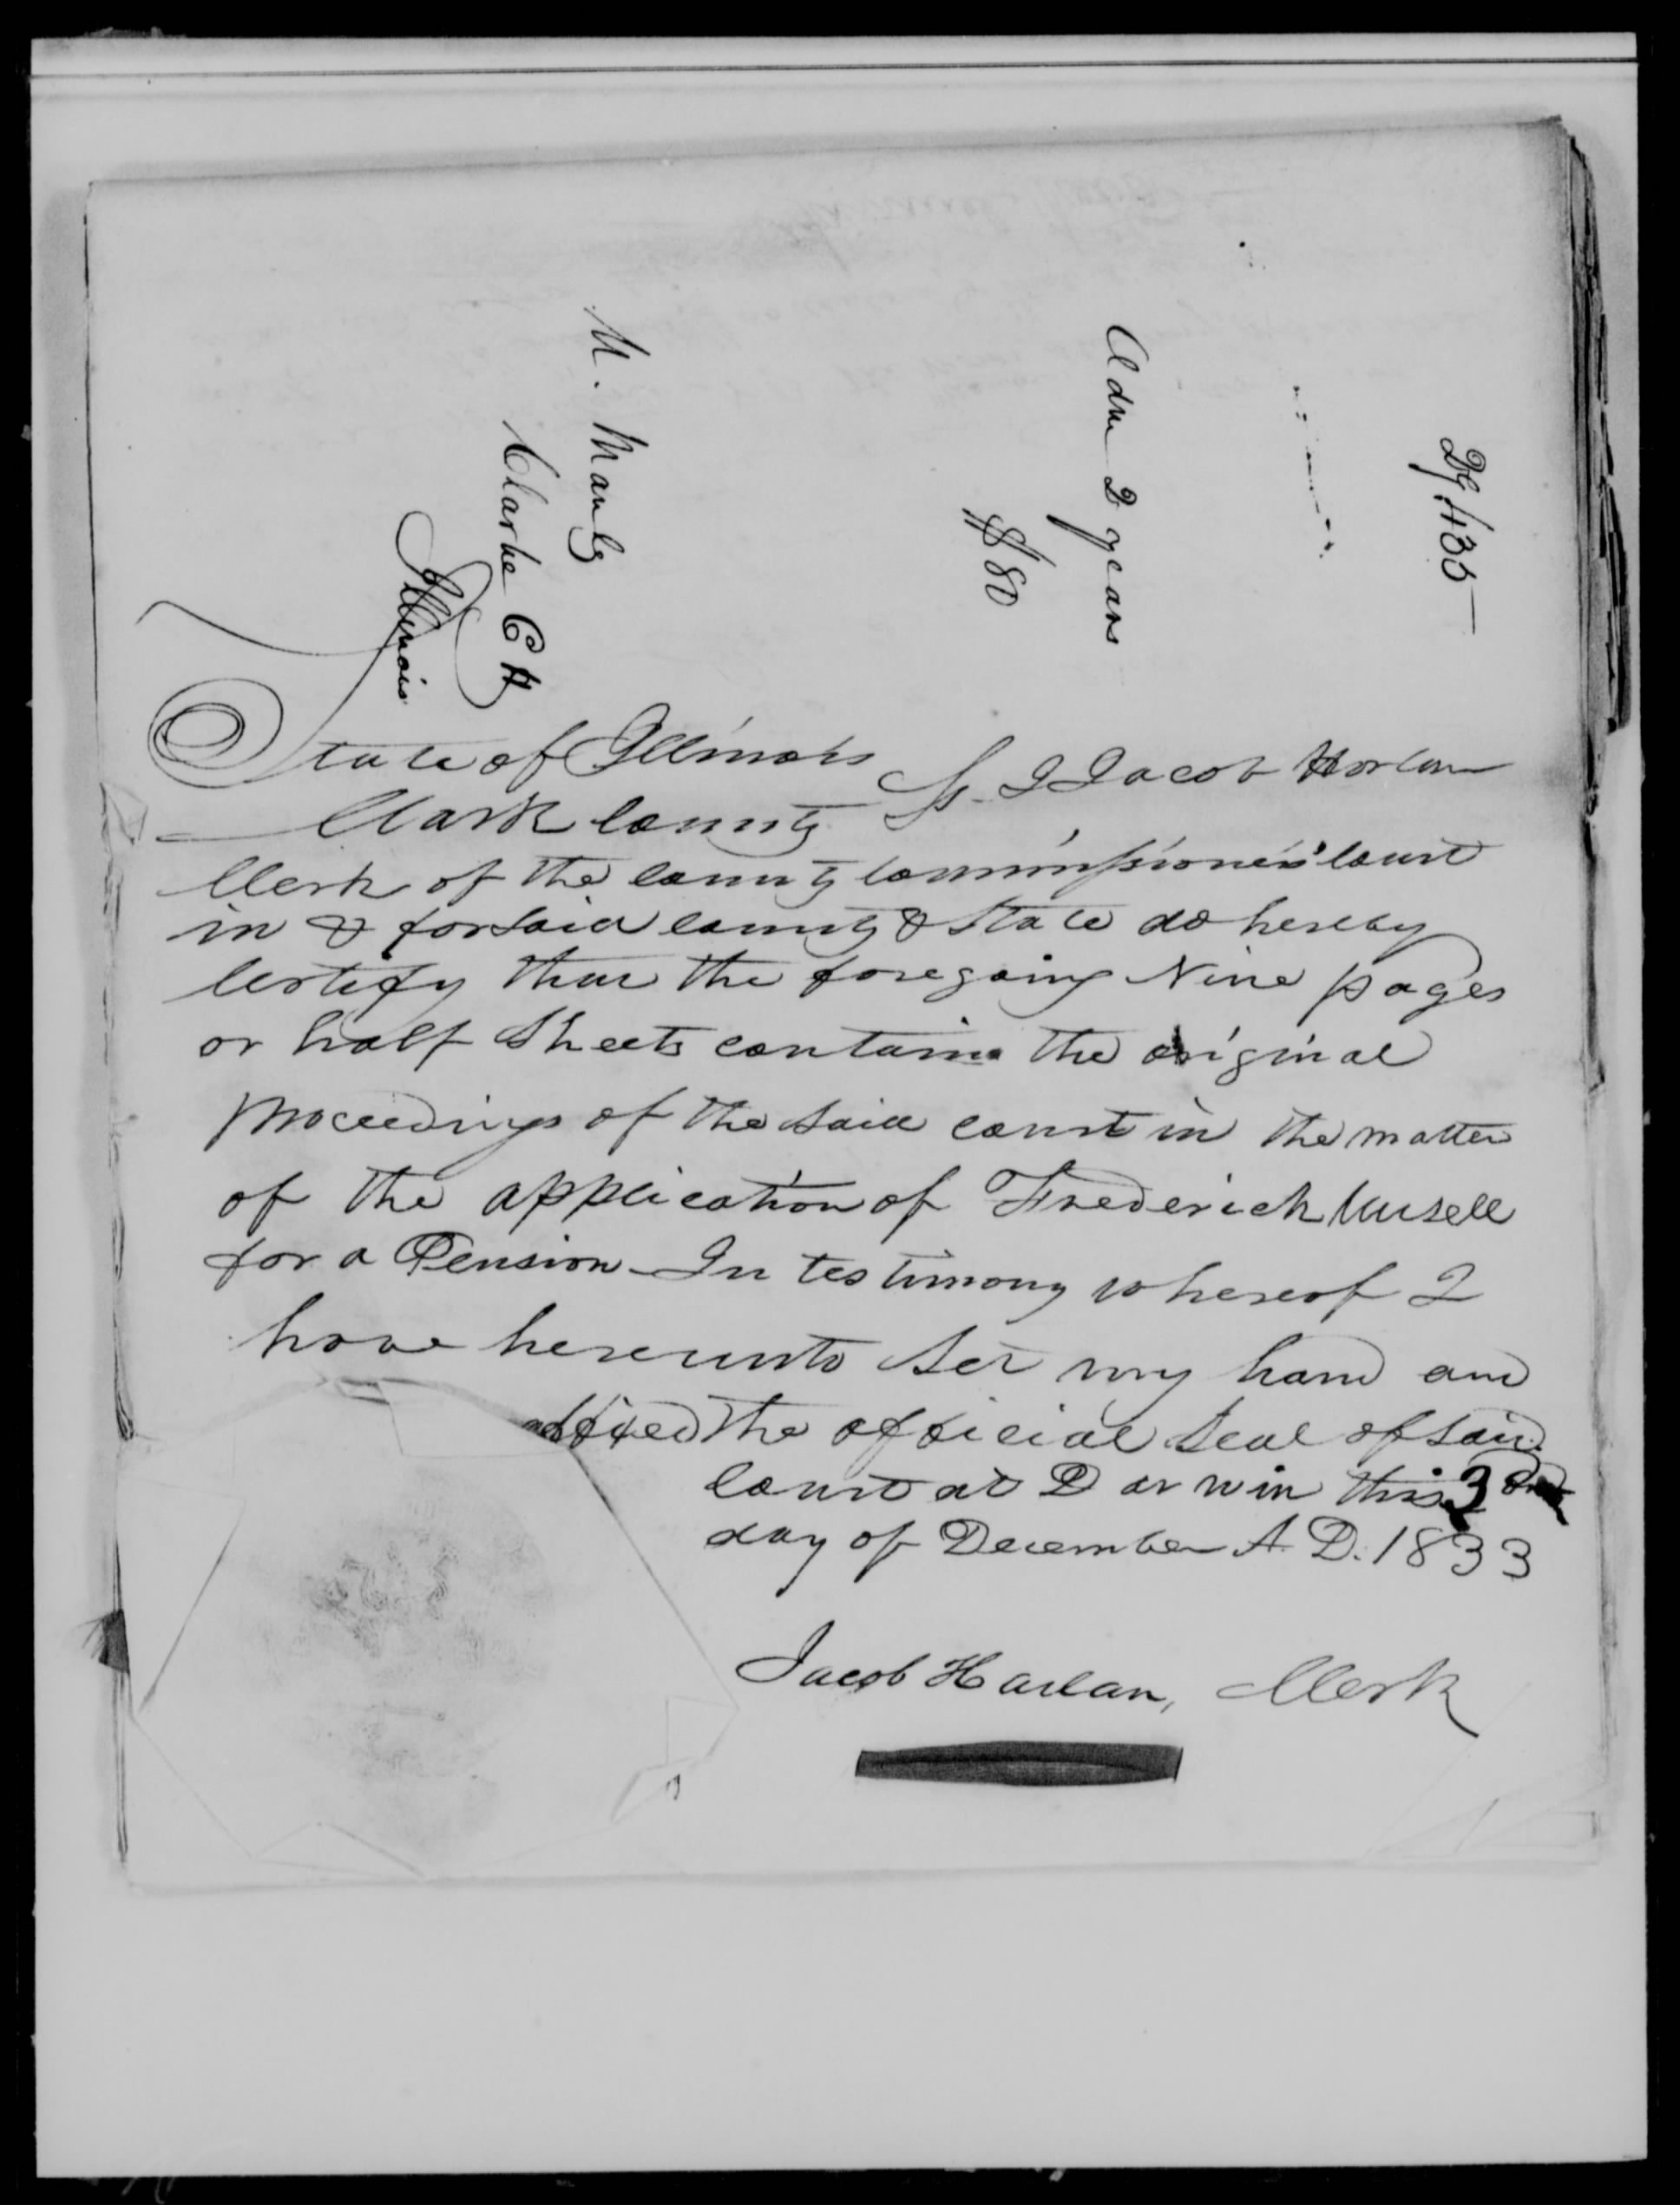 29,435
Adm 2 years
$80
U. Manly
Clarke C H
Illinois
State of Illinois
Clark County Ss. I Jacob Harlan
Clerk of the County Commissioners' Court
in & for said County & State do hereby
Certify that the foregoing Nine pages
or half Sheets contains the original
proceedings of the said court in the matter
of the application of Frederick Unsell
for a Pension - In testimony whereof I
have hereunto Set my hand and
affixed the official Seal of said
Court at Darwin this 3rd
day of December A. D. 1833
Jacob Harlan, Clerk